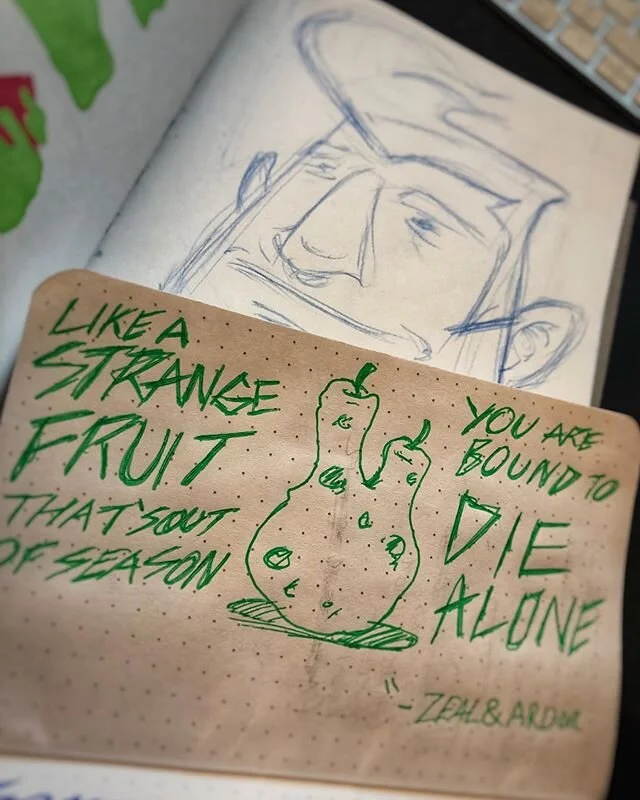 LIKE A
STRANGE
FRUIT
THAT'S OUT
OF SEASON
YOU ARE
BOUND TO
DIE
ALONE
- ZEAL & ARDOR